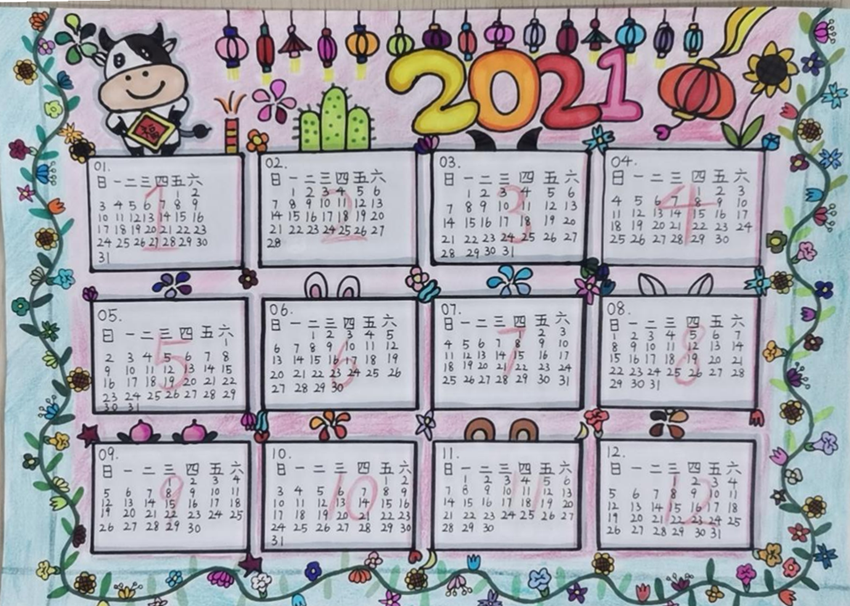 2021
01.
日 一 二 三 四 五 六
1 2
3 4 5 6 7 8 9
10 11 12 13 14 15 16
17 18 19 20 21 22 23
24 25 26 27 28 29 30
31
1
02.
日 一 二 三 四 五 六
1 2 3 4 5 6
7 8 9 10 11 12 13
14 15 16 17 18 19 20
21 22 23 24 25 26 27
28
2
03.
日 一 二 三 四 五 六
1 2 3 4 5 6
7 8 9 10 11 12 13
14 15 16 17 18 19 20
21 22 23 24 25 26 27
28 29 30 31
3
04.
日 一 二 三 四 五 六
1 2 3
4 5 6 7 8 9 10
11 12 13 14 15 16 17
18 19 20 21 22 23 24
25 26 27 28 29 30
4
05.
日 一 二 三 四 五 六
1
2 3 4 5 6 7 8
9 10 11 12 13 14 15
16 17 18 19 20 21 22
23 24 25 26 27 28 29
30 31
5
06.
日 一 二 三 四 五 六
1 2 3 4 5
6 7 8 9 10 11 12
13 14 15 16 17 18 19
20 21 22 23 24 25 26
27 28 29 30
6
07.
日 一 二 三 四 五 六
2 3
4 5 6 7 8 9 10
11 12 13 14 15 16 17
18 19 20 21 22 23 24
25 26 27 28 29 30 31
7
08.
日 一 二 三 四 五 六
1 2 3 4 5 6 7
8 9 10 11 12 13 14
15 16 17 18 19 20 21
22 23 24 25 26 27 28
29 30 31
8
09.
日 一 二 三 四 五 六
2 3 4
5 6 7 8 9 10 11
12 13 14 15 16 17 18
19 20 21 22 23 24 25
26 27 28 29 30
9
10.
日 一 二 三 四 五 六
1 2
3 4 5 6 7 8 9
10 11 12 13 14 15 16
17 18 19 20 21 22 23
24 25 26 27 28 29 30
31
10
11.
日 一 二 三 四 五 六
1 2 3 4 5 6
7 8 9 10 11 12 13
14 15 16 17 18 19 20
21 22 23 24 25 26 27
28 29 30
11
12.
日 一 二 三 四 五 六
2 3 4
5 6 7 8 9 10 11
12 13 14 15 16 17 18
19 20 21 22 23 24 25
26 27 28 29 30 31
12